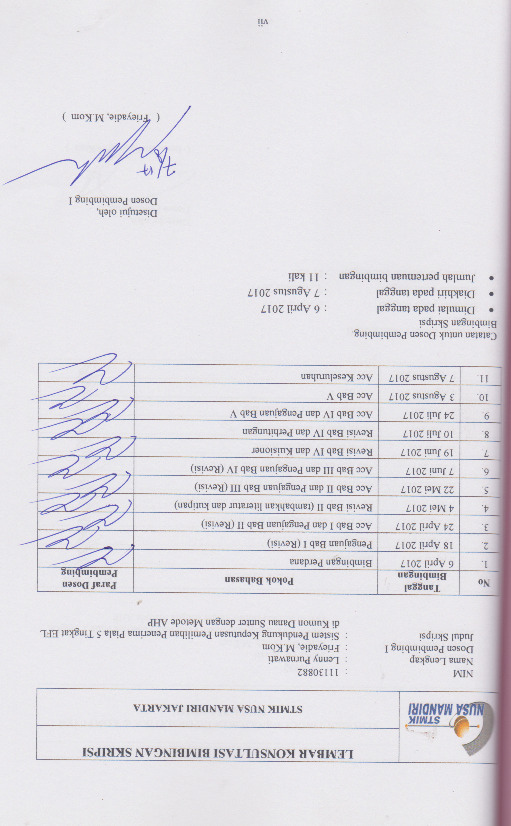 LEMBAR KONSULTASI BIMBINGAN SKRIPSI
STMIK
NUSA MANDIRI
STMIK NUSA MANDIRI JAKARTA
NIM : 11130882
Nama Lengkap : Lenny Purnawati
Dosen Pembimbing I : Frieyadie, M.Kom
Judul Skripsi : Sistem Pendukung Keputusan Pemilihan Penerima Piala 5 Tingkat EFL
di Kumon Danau Sunter dengan Metode AHP
No Tanggal Bimbingan Pokok Bahasan Paraf Dosen Pembimbing
1. 6 April 2017 Bimbingan Perdana
2. 18 April 2017 Pengajuan Bab I (Revisi)
3. 24 April 2017 Acc Bab I dan Pengajuan Bab II (Revisi)
4. 4 Mei 2017 Revisi Bab II (tambahkan literatur dan kutipan)
5 22 Mei 2017 Acc Bab II dan Pengajuan Bab III (Revisi)
6. 7 Juni 2017 Acc Bab III dan Pengajuan Bab IV (Revisi)
7 19 Juni 2017 Revisi Bab IV dan Kuisioner
8. 10 Juli 2017 Revisi Bab IV dan Perhitungan
9 24 Juli 2017 Acc Bab IV dan Pengajuan Bab V
10. 3 Agustus 2017 Acc Bab V
11. 7 Agustus 2017 Acc Keseluruhan
Catatan untuk Dosen Pembimbing.
Bimbingan Skripsi
• Dimulai pada tanggal : 6 April 2017
• Diakhiri pada tanggal : 7 Agustus 2017
• Jumlah pertemuan bimbingan : 11 kali
Disetujui oleh,
Dosen Pembimbing I
( Frieyadie, M.Kom )
vii